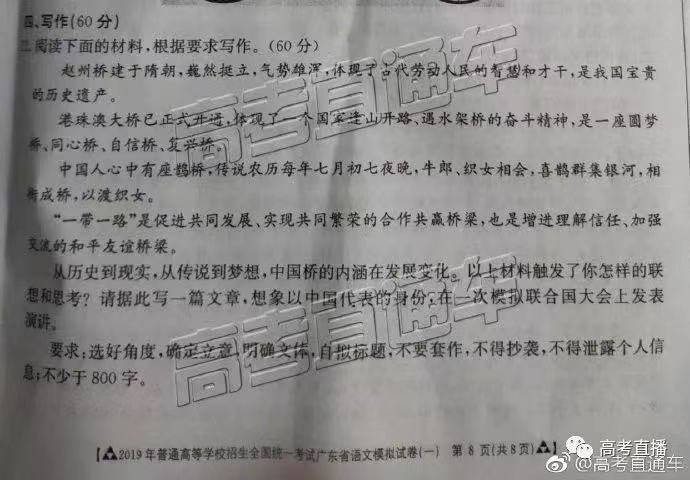 四、写作(60分)
二.阅读下面的材料,根据要求写作。(60分)
赵州桥建于隋朝,巍然挺立,气势雄浑,体现了古代劳动人民的智慧和才干,是我国宝贵
的历史遗产。
港珠澳大桥已正式开通,体现了一个国家逢山开路、遇水架桥的奋斗精神,是一座圆梦
桥、同心桥、自信桥、复兴桥。
中国人心中有座鹊桥,传说农历每年七月初七夜晚,牛郎、织女相会,喜鹊群集银河,相
衔成桥,以渡织女。
“一带一路”是促进共同发展、实现共同繁荣的合作共赢桥梁,也是增进理解信任、加强
交流的和平友谊桥梁。
从历史到现实,从传说到梦想,中国桥的内涵在发展变化。以上材料触发了你怎样的联
想和思考?请据此写一篇文章,想象以中国代表的身份,在一次模拟联合国大会上发表
演讲。
要求:选好角度,确定立意,明确文体,自拟标题,不要套作,不得抄袭,不得泄露个人信
息;不少于800字。
【2019年普通高等学校招生全国统一考试广东省语文模拟试卷(一) 第8页(共8页)】
高考直通车
高考直通车
高考直播
@高考直通车